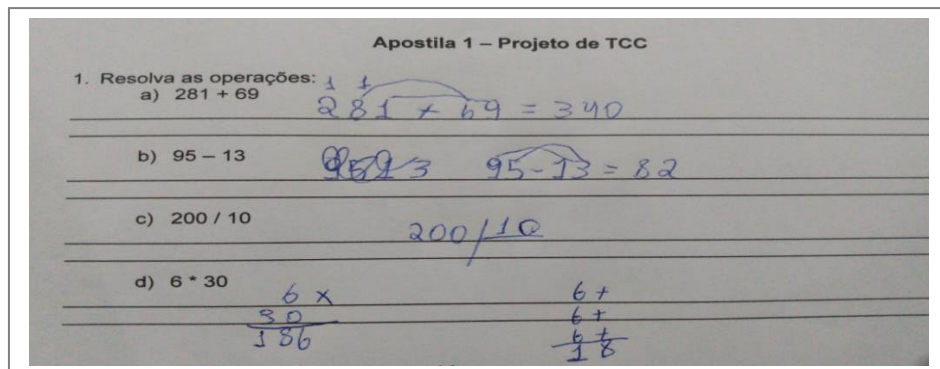 Apostila 1 – Projeto de TCC
1. Resolva as operações:
a) 281 + 69
1 1
281 + 69 = 340
b) 95 – 13
95 - 13 = 82
c) 200 / 10
200 / 10
d) 6 * 30
6 x
30
186
6 +
6 +
6 +
18